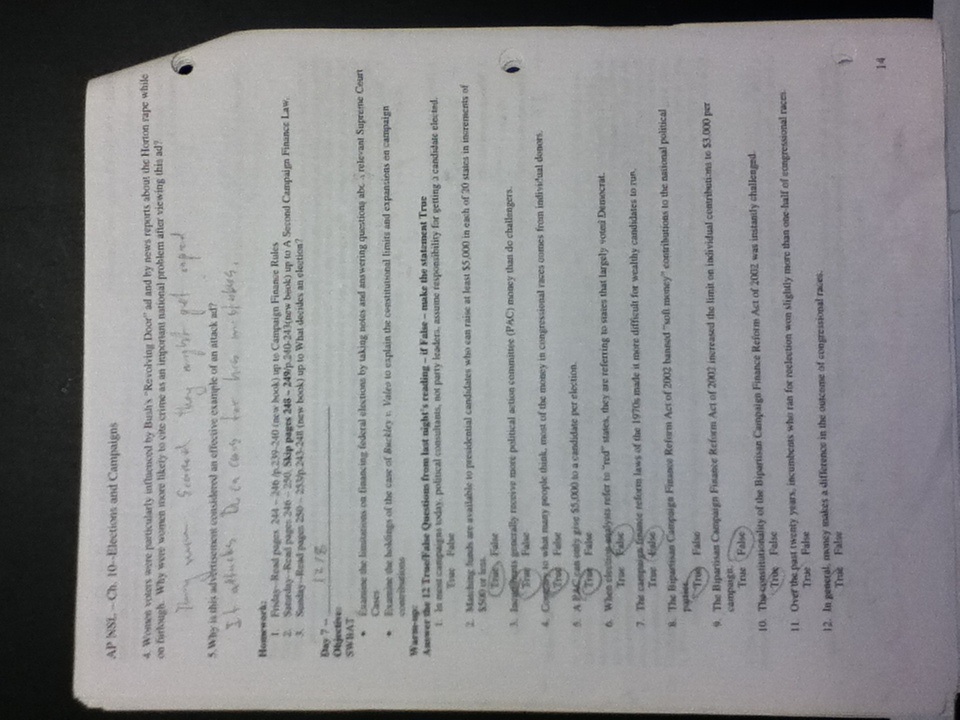 AP NSL – Ch. 10--Elections and Campaigns
4. Women voters were particularly influenced by Bush's "Revolving Door" ad and by news reports about the Horton rape while
on furlough. Why were women more likely to cite crime as an important national problem after viewing this ad?
They were scared they might get raped
5. Why is this advertisement considered an effective example of an attack ad?
It attacks for his mistakes.
Homework:
1. Friday--Read pages 244 – 246 /p.239-240 (new book) up to Campaign Finance Rules
2. Saturday--Read pages 246 – 250. Skip pages 248 – 249/p.240-243(new book) up to A Second Campaign Finance Law.
3. Sunday--Read pages 250 – 253/p.243-248 (new book) up to What decides an election?
Day 7 – 12/8
Objective:
SWBAT
• Examine the limitations on financing federal elections by taking notes and answering questions relevant Supreme Court
Cases
• Examine the holdings of the case of Buckley v. Valeo to explain the constitutional limits and expansions on campaign
contributions
Warm-up:
Answer the 12 True/False Questions from last night's reading – if False – make the statement True
1. In most campaigns today, political consultants, not party leaders, assume responsibility for getting a candidate elected.
True False
2. Matching funds are available to presidential candidates who can raise at least $5,000 in each of 20 states in increments of
$500 or less.
True False
3. Incumbents generally receive more political action committee (PAC) money than do challengers.
True False
4. Contrary to what many people think, most of the money in congressional races comes from individual donors.
True False
5. A PAC can only give $5,000 to a candidate per election.
True False
6. When election analysts refer to "red" states, they are referring to states that largely voted Democrat.
True False
7. The campaign finance reform laws of the 1970s made it more difficult for wealthy candidates to run.
True False
8. The Bipartisan Campaign Finance Reform Act of 2002 banned "soft money" contributions to the national political
parties.
True False
9. The Bipartisan Campaign Finance Reform Act of 2002 increased the limit on individual contributions to $3,000 per
campaign.
True False
10. The constitutionality of the Bipartisan Campaign Finance Reform Act of 2002 was instantly challenged.
True False
11. Over the past twenty years, incumbents who ran for reelection won slightly more than one-half of congressional races.
True False
12. In general, money makes a difference in the outcome of congressional races.
True False
14